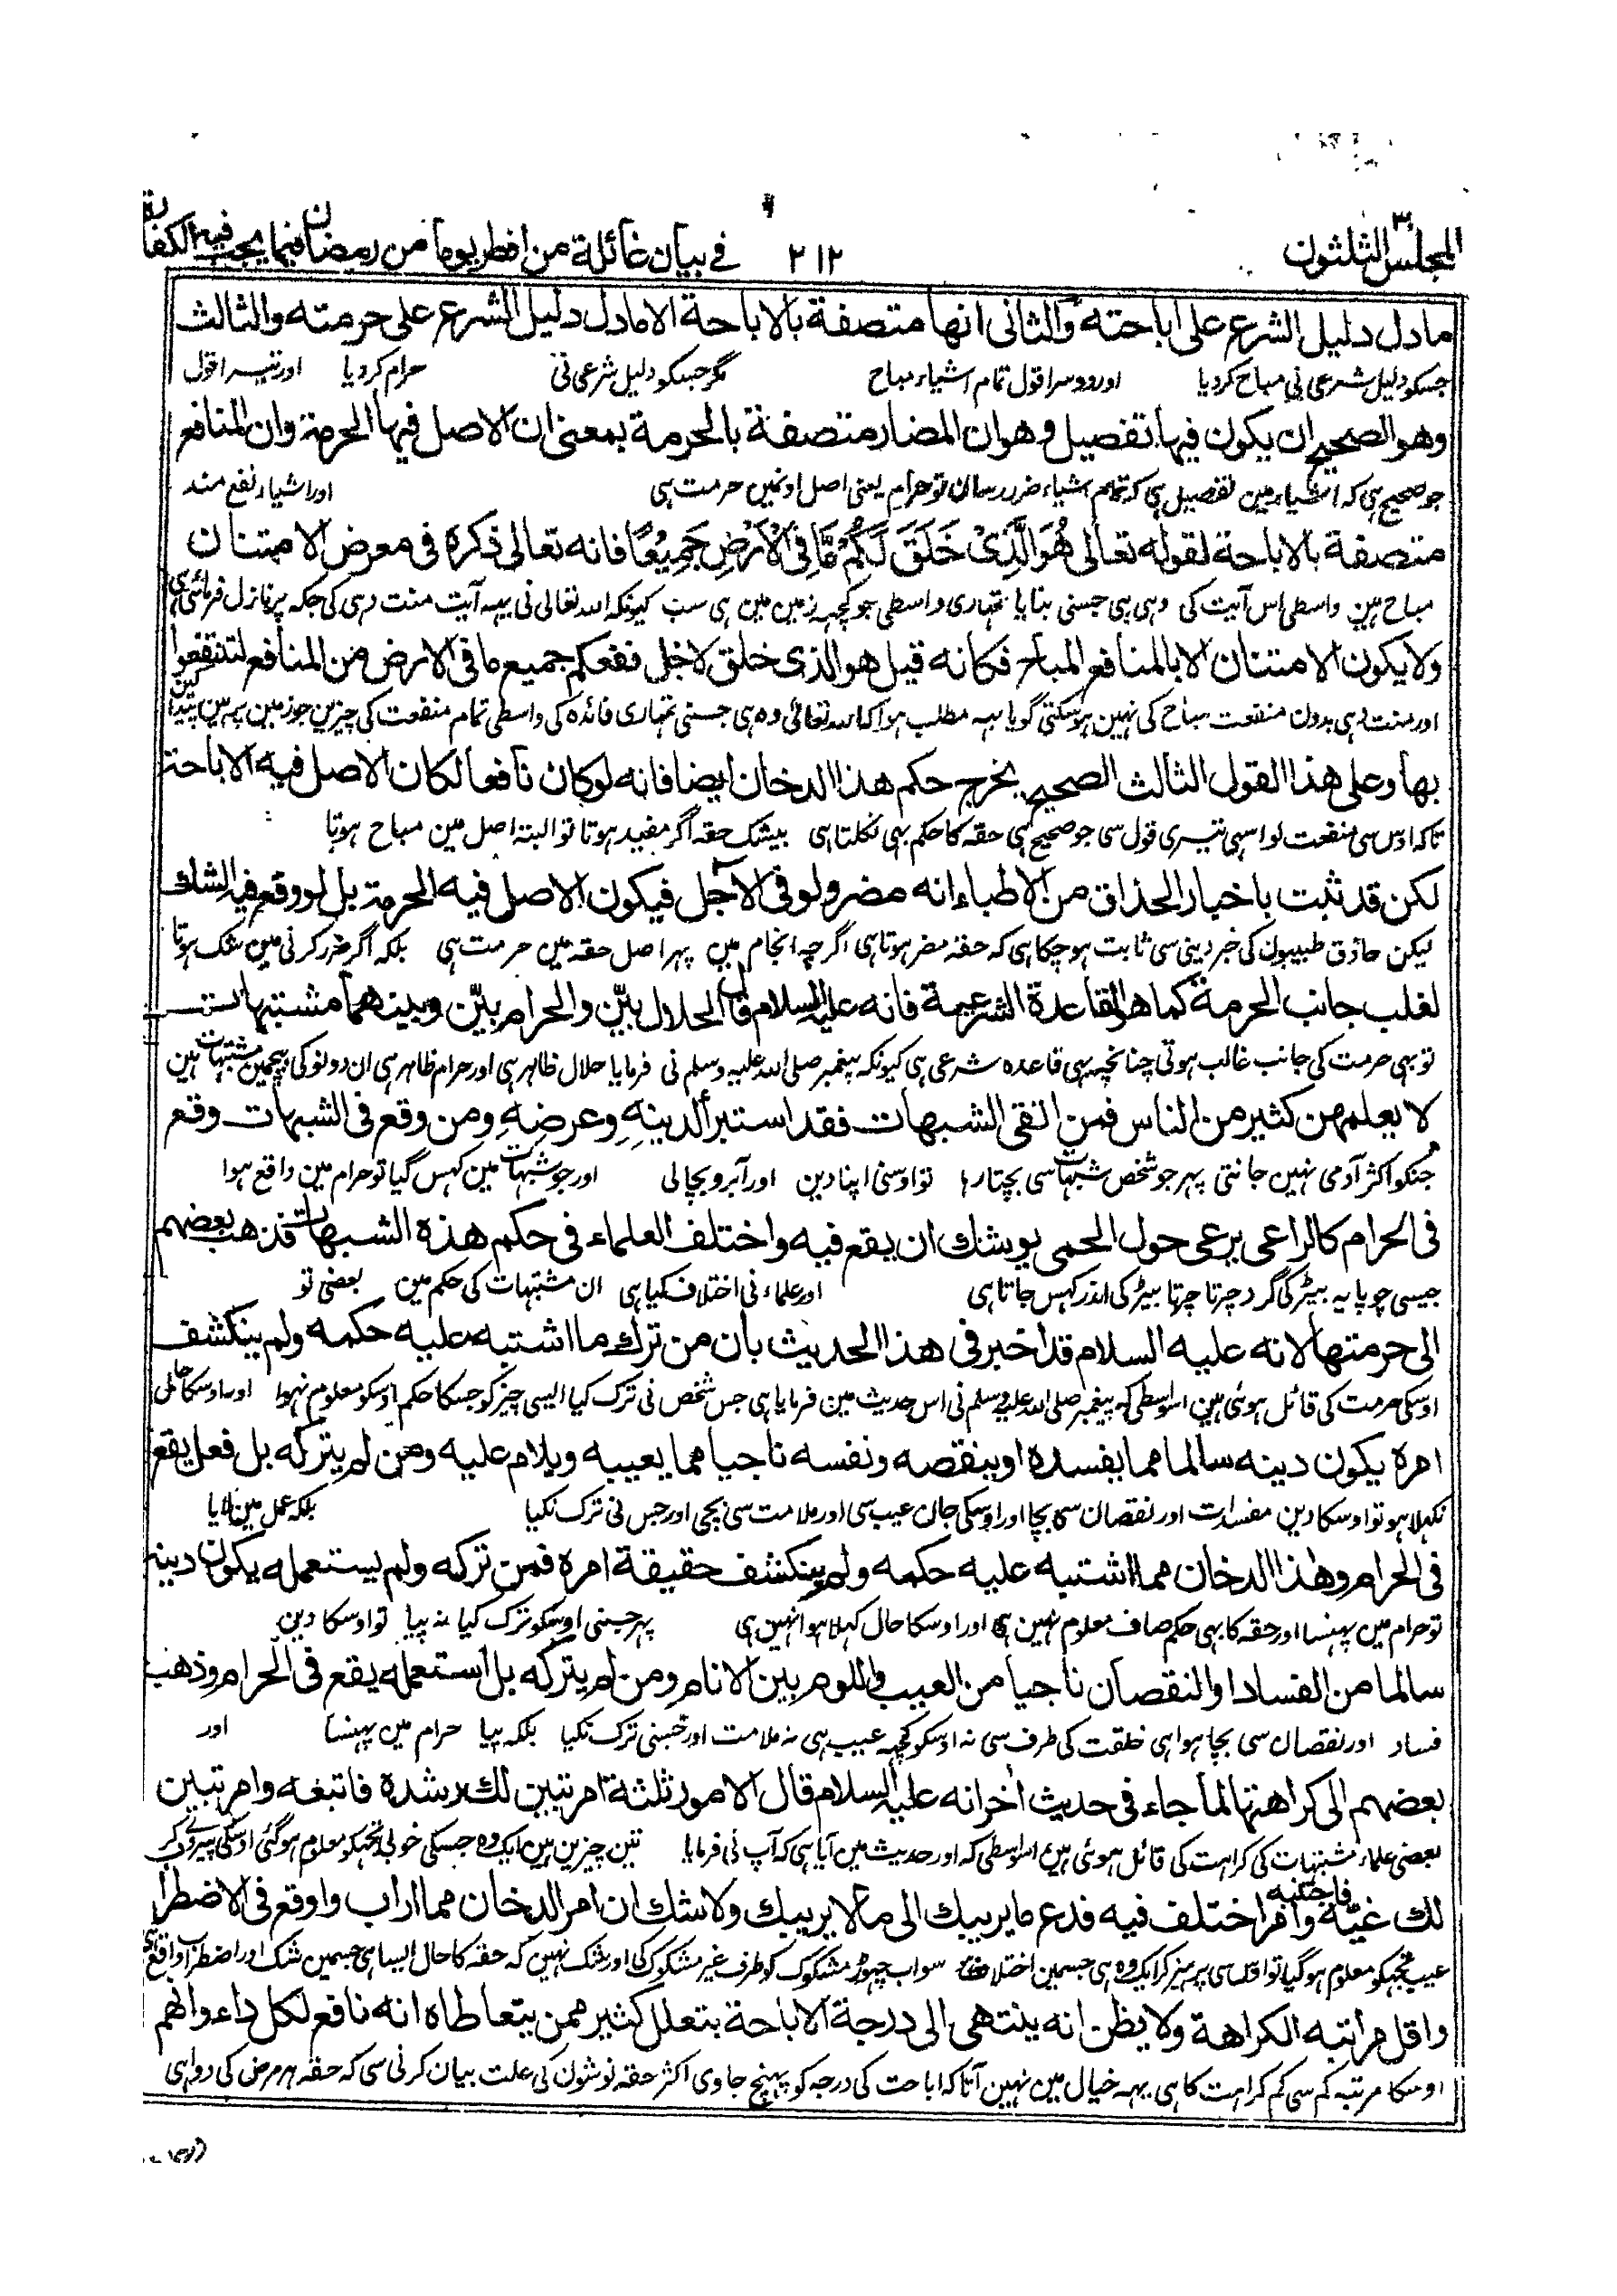 المجلس الثلثون ٢١٢ في بيان غائلة من افطر يوما من رمضان فيما يجب فيه الكفارة
ما دل دليل الشرع على اباحته والثانى انها متصفة بالاباحة الا ما دل دليل الشرع على حرمته والثالث
جسكو دليل شرعى نى مباح كرديا اور دوسرا قول تمام اشياء مباح مگر جسكو دليل شرعى نى حرام كرديا اور تيسرا قول
وهو الصحيح ان يكون فيها تفصيل وهو ان المضار متصفة بالحرمة بمعنى ان الاصل فيها الحرمة وان المنافع
جو صحيح ہى كہ اشياء مين تفصيل ہى كہ تمام اشياء ضرر رسان تو حرام يعنى اصل اونمين حرمت ہى اور اشياء نفع مند
متصفة بالاباحة لقوله تعالى هُوَ الَّذِىْ خَلَقَ لَكُمْ مَّا فِى الْاَرْضِ جَمِيْعًا فانه تعالى ذكره فى معرض الامتنان
مباح ہين واسطى اس آيت كى وہى ہى جسنى بنايا تمہارى واسطى جو كچہہ زمين مين ہى سب كيونكہ اللہ تعالى نى يہہ آيت منت دہى كى جگہ پر نازل فرمائى ہى
ولا يكون الامتنان الا بالمنافع المباح فكانه قيل هو الذى خلق لاجل نفعكم جميع ما فى الارض من المنافع لتنتفعوا
اور منت دہى بدون منفعت مباح كى نہين ہوسكتى گويا يہہ مطلب ہوا كہ اللہ تعالى وہ ہى جسنى تمہارى فائدہ كى واسطى تمام منفعت كى چيزين جو زمين پر ہين پيدا كين
بها وعلى هذا القول الثالث الصحيح يخرج حكم هذا الدخان ايضا فانه لو كان نافعا لكان الاصل فيه الاباحة
تاكہ اوس سى منفعت لو اسى تيسرى قول سى جو صحيح ہى حقہ كا حكم بہى نكلتا ہى بيشك حقہ اگر مفيد ہوتا تو البتہ اصل مين مباح ہوتا
لكن قد ثبت باخبار الحذاق من الاطباء انه مضر ولو فى الآجل فيكون الاصل فيه الحرمة بل لو وقع فيه الشك
ليكن حاذق طبيبون كى خبر دينى سى ثابت ہوچكا ہى كہ حقہ مضر ہوتا ہى اگرچہ انجام مين پہر اصل حقہ مين حرمت ہى بلكہ اگر ضرر كرنى مين شك ہوتا
لغلب جانب الحرمة كما هو القاعدة الشرعية فانه عليه السلام قال الحلال بيّن والحرام بيّن وبينهما مشتبهات
تو بہى حرمت كى جانب غالب ہوتى چنانچہ يہى قاعدہ شرعى ہى كيونكہ پيغمبر صلى اللہ عليہ وسلم نى فرمايا حلال ظاہر ہى اور حرام ظاہر ہى ان دونو كى بيچمين مشتبہات ہين
لا يعلمهن كثير من الناس فمن اتقى الشبهات فقد استبرأ لدينهِ وعرضهِ ومن وقع فى الشبهات وقع
جنكو اكثر آدمى نہين جانتى پہر جو شخص شبہات سى بچتا رہا تو اوسنى اپنا دين اور آبرو بچالى اور جو شبہات مين گہس گيا تو حرام مين واقع ہوا
فى الحرام كالراعى يرعى حول الحمى يوشك ان يقع فيه واختلف العلماء فى حكم هذه الشبهات فذهب بعضهم
جيسى چوپايہ بيڑ كى گرد چرتا چرتا بيڑ كى اندر گہس جاتا ہى اور علماء نى اختلاف كيا ہى ان مشتبہات كى حكم مين بعضى تو
الى حرمتها لانه عليه السلام قد اخبر فى هذا الحديث بان من ترك ما اشتبه عليه حكمه ولم ينكشف
اوسكى حرمت كى قائل ہوئى ہين اسواسطى كہ پيغمبر صلى اللہ عليہ وسلم نى اس حديث مين فرمايا ہى جس شخص نى ترك كيا ايسى چيز كو جسكا حكم اوسكو معلوم نہوا اور اوسكا حال
امره يكون دينه سالما مما يفسده او ينقصه ونفسه ناجيا مما يعيبه ويلام عليه ومن لم يتركه بل فعل يقع
نكہلا ہو تو اوسكا دين مفسدات اور نقصان سى بچا اور اوسكى جان عيب سى اور ملامت سى بچى اور جس نى ترك نكيا بلكہ عمل مين لايا
فى الحرام وهذا الدخان مما اشتبه عليه حكمه ولم ينكشف حقيقة امره فمن تركه ولم يستعمله يكون دينه
تو حرام مين پہنسا اور حقہ كا بہى حكم صاف معلوم نہين ہى اور اوسكا حال كہلا ہوا نہين ہى پہر جسنى اوسكو ترك كيا نہ پيا تو اوسكا دين
سالما من الفساد او النقصان ناجيا من العيب واللوم بين الانام ومن لم يتركه بل استعمله يقع فى الحرام وذهب
فساد اور نقصان سى بچا ہوا ہى خلقت كى طرف سى نہ اوسكو كچہہ عيب ہى نہ ملامت اور جسنى ترك نكيا بلكہ پيا حرام مين پہنسا اور
بعضهم الى كراهتها لما جاء فى حديث اخر انه عليه السلام قال الامور ثلثة امر تبين لك رشده فاتبعه وامر تبين
بعضى علماء مشتبہات كى كراہت كى قائل ہوئى ہين اسواسطى كہ اور حديث مين آيا ہى كہ آپ نى فرمايا تين چيزين ہين ايك وہ جسكى خوبى تجہكو معلوم ہوگئى اوسكى پيروے كر
لك غيّه فاجتنبه وامر اختلف فيه فدع ما يريبك الى ما لا يريبك ولا شك ان امر الدخان مما اراب واوقع فى الاضطراب
عيب تجہكو معلوم ہوگيا تو اوس سى پرہيز كر ايك وہ ہى جسمين اختلاف سو اب چہوڑ مشكوك كو طرف غير مشكوك كى اور شك نہين كہ حقہ كا حال ايسا ہى جسمين شك اور اضطراب واقع ہى
واقل مراتبه الكراهة ولا يظن انه ينتهى الى درجة الاباحة بتعلل كثير ممن يتعاطاه انه نافع لكل داء وانهم
اوسكا مرتبہ كم سى كم كراہت كا ہى يہہ خيال مين نہين آتا كہ اباحت كى درجہ كو پہنچ جاوى اكثر حقہ نوشون كى علت بيان كرنى سى كہ حقہ ہر مرض كى دوا ہى